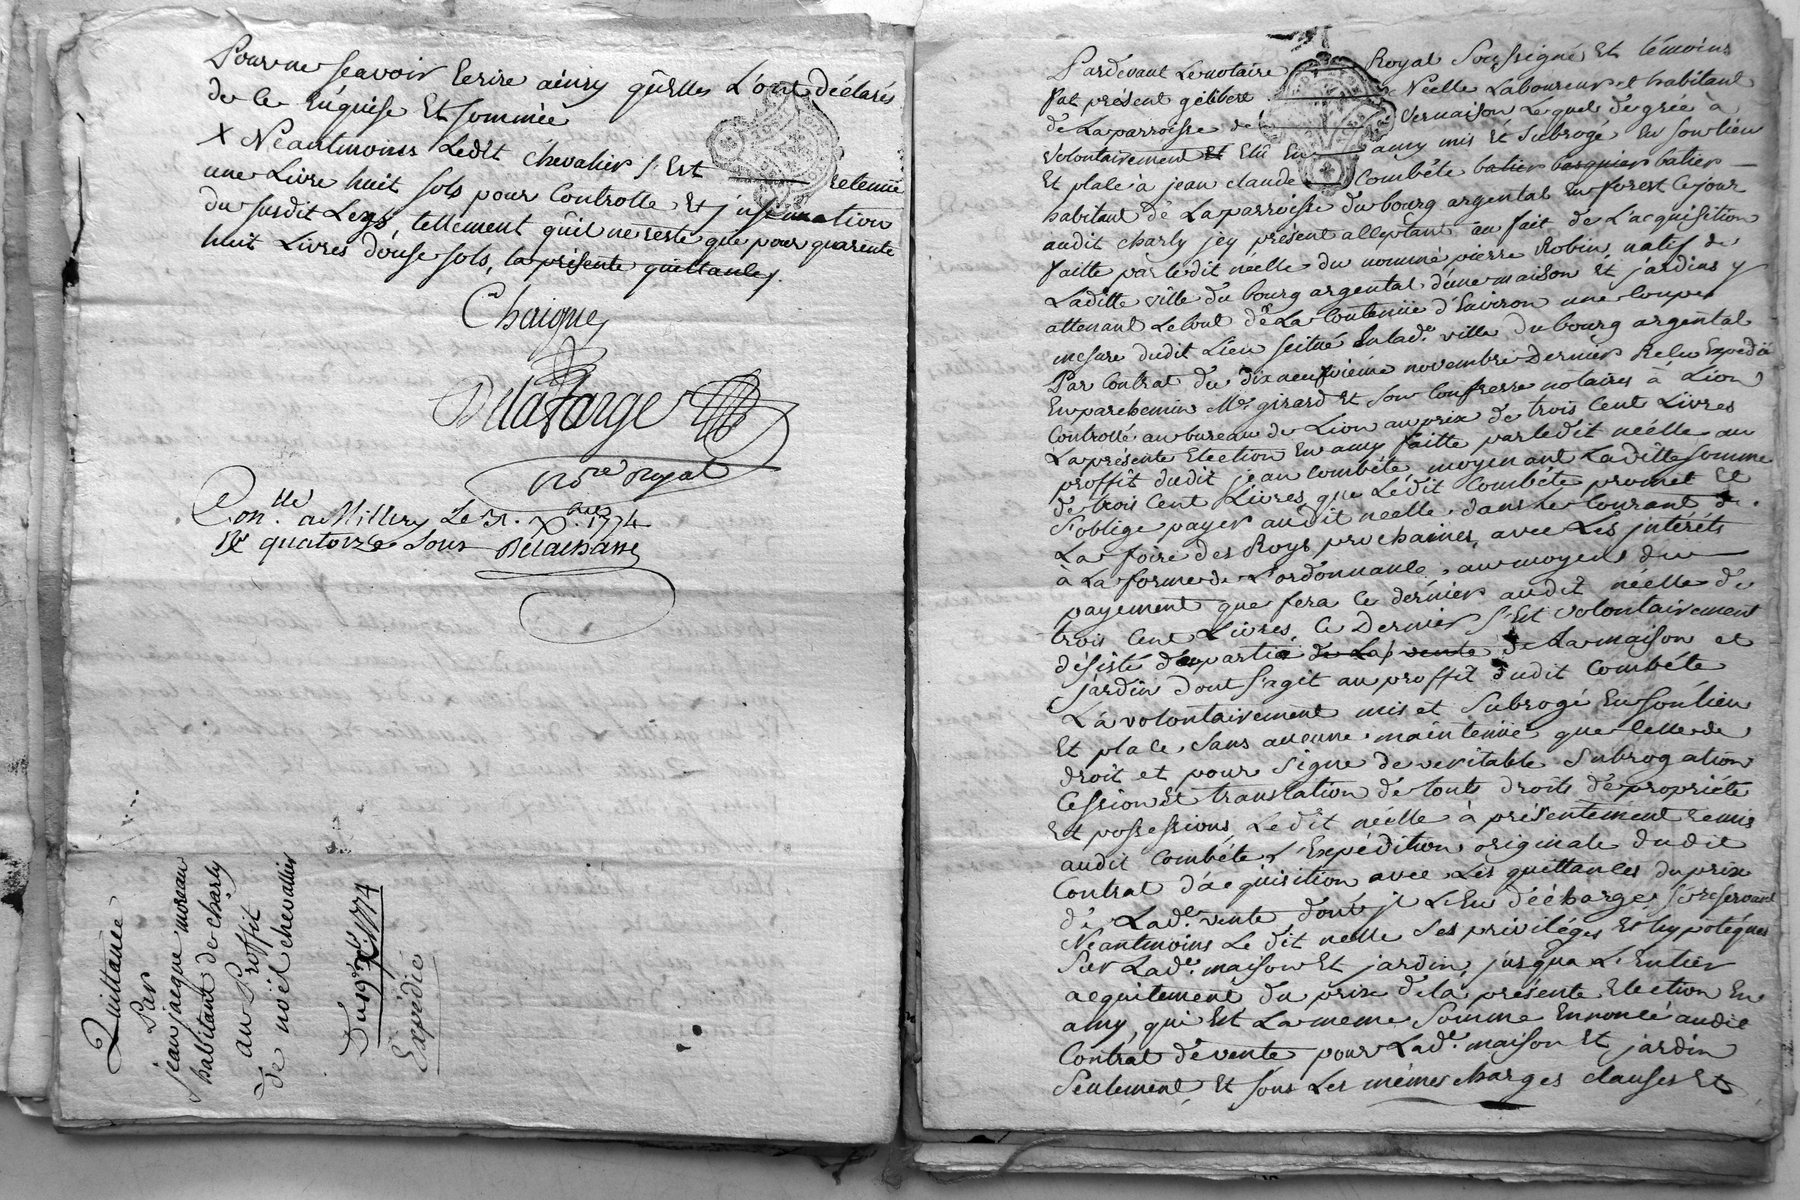 Pour ne scavoir Ecrire ainsy quelles L'ont déclarés
de ce Réquise Et sommée
X Neantmoins Ledit chevalier s'Est retenüe
une Livre huit sols pour Controlle Et jnsinuation
du susdit Legs, tellement qu'il ne reste que pour quarente
huit Livres douse sols, la présente quittance.
Chaigne
Delafarge
nore royal
Conlle a Millery Le 31. Xbre 1774
Re quatorze sous Delachasse
Quittance
Par
jean jacque moreau
habitant de charly
au Proffit
de noël chevalier
Du 19e Xbre 1774
Expédié
Pardevant Le notaire Royal Soussigné Et témoins
fut présent gilibert Néelle Laboureur et habitant
de La parroisse de Vernaison Lequel de gree a
volontairement Et Elû En amy mis Et Subrogé En son lieu
Et place à jean claude Combéte batier basquier batier
habitant de La parroisse du bourg argental En forest Ce jour
audit charly jcy présent acceptant au fait de L'acquisition
faitte par ledit néelle du nommé pierre Robin natif de
Laditte ville du bourg argental d'une maison Et jardins y
attenant Le tout de La Contenüe d'Environ une Coupe
mesure dudit Lieu scitué En lade. ville du bourg argental
Par Contrat du dix neufvieme novembre Dernier Relu Expedié
En parchemin Me. girard Et son Confrerre notaires à Lion
Controllé au bureau de Lion au prix de trois Cent Livres
La présente Election En amy faitte par ledit néelle au
proffit dudit jean Combéte moyenant La ditte somme
de trois Cent Livres que Lédit Combéte promet Et
s'oblige payer audit néelle dans le Courant de
La foire des Roys prochaines, avec Les jntéréts
à La forme de L'ordonnance, au moyen du
payement que fera Ce dérnier audit néelle de
trois Cent Livres Ce Dernier s'Est volontairement
désisté départie de La vente de La maison et
jardin dont s'agit au proffit dudit Combéte
L'a volontairement mis et Subrogé En son lieu
Et place sans aucune maintenüe que Celle de
droit et pour Signe de veritable Subrogation
Cession Et translation de touts droits de propriéte
Et possessions Ledit néelle à présentement remis
audit Combéte L'Expédition originale dudit
Contrat d'acquisition avec Les quittances du prix
de Lade. vente dont jl L'En décharge, se reservant
Néantmoins Le dit nelle ses priviléges Et hypotéques
sur Lade. maison Et jardin, jusqua L'Entier
acquitement du prix de la présente Election En
amy, qui Est La meme Somme Ennoncé audit
Contrat de vente pour Lade. maison Et jardin
Seulement, Et sous Les mémes charges clauses Et